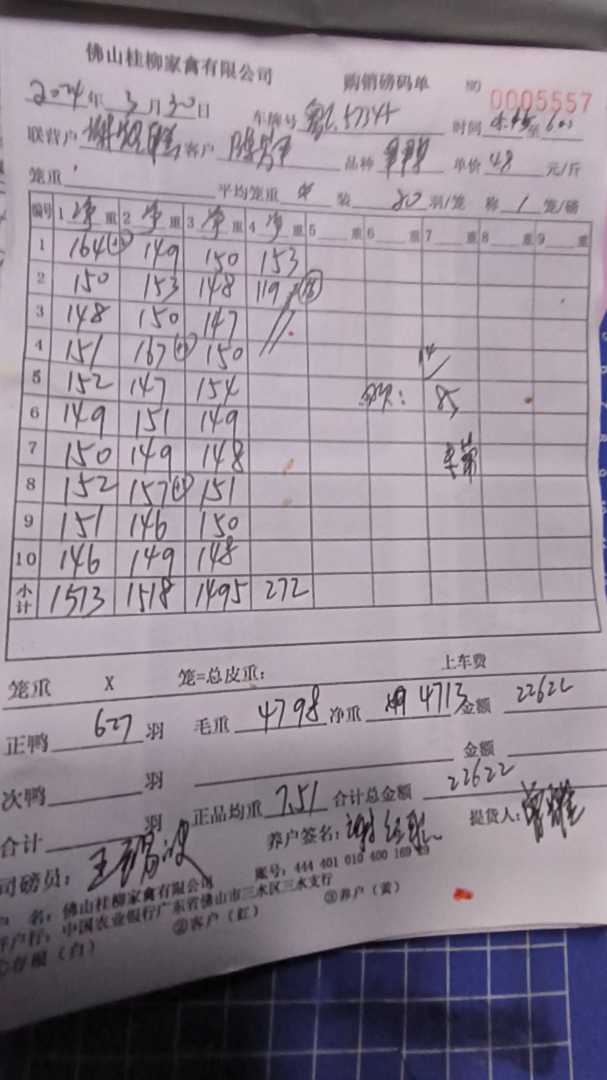 佛山桂柳家禽有限公司 购销磅码单 NO 0005557
2024年3月30日 车牌号 57345 时间 至
联营户 客户 品种 单价 4.8 元/斤
笼重: 平均笼重 装 20 羽/笼 称 1 笼/磅
编号 1 净重 2 净重 3 净重 4 净重 5 重 6 重 7 重 8 重 9 重
1 164 149 150 153
2 150 153 148 119
3 148 150 147
4 151 167 150
5 152 147 154 85
6 149 151 149
7 150 149 148
8 152 157 151
9 151 146 150
10 146 149 148
小计 1513 1518 1495 272
笼重 X 笼=总皮重: 上车费
正鸭 627 羽 毛重 4798 净重 4713 金额 22622
次鸭 羽 金额
合计 羽 正品均重 7.51 合计总金额 22622
司磅员: 养户签名: 提货人:
户 名: 佛山桂柳家禽有限公司 账号: 444 401 010 400 169 29
开户行: 中国农业银行广东省佛山市三水区三水支行
①存根(白) ②客户(红) ③养户(黄)